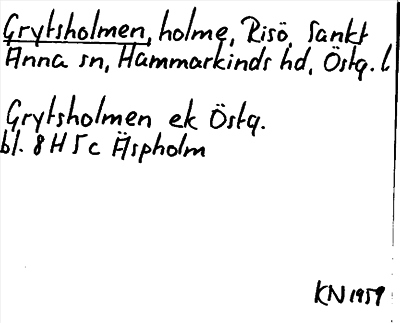 Grytsholmen, holme, Risö, Sankt
Anna sn, Hammarkinds hd, Östg. l
Grytsholmen ek Östg.
bl. 8 H 5 c Äspholm
KN 1959